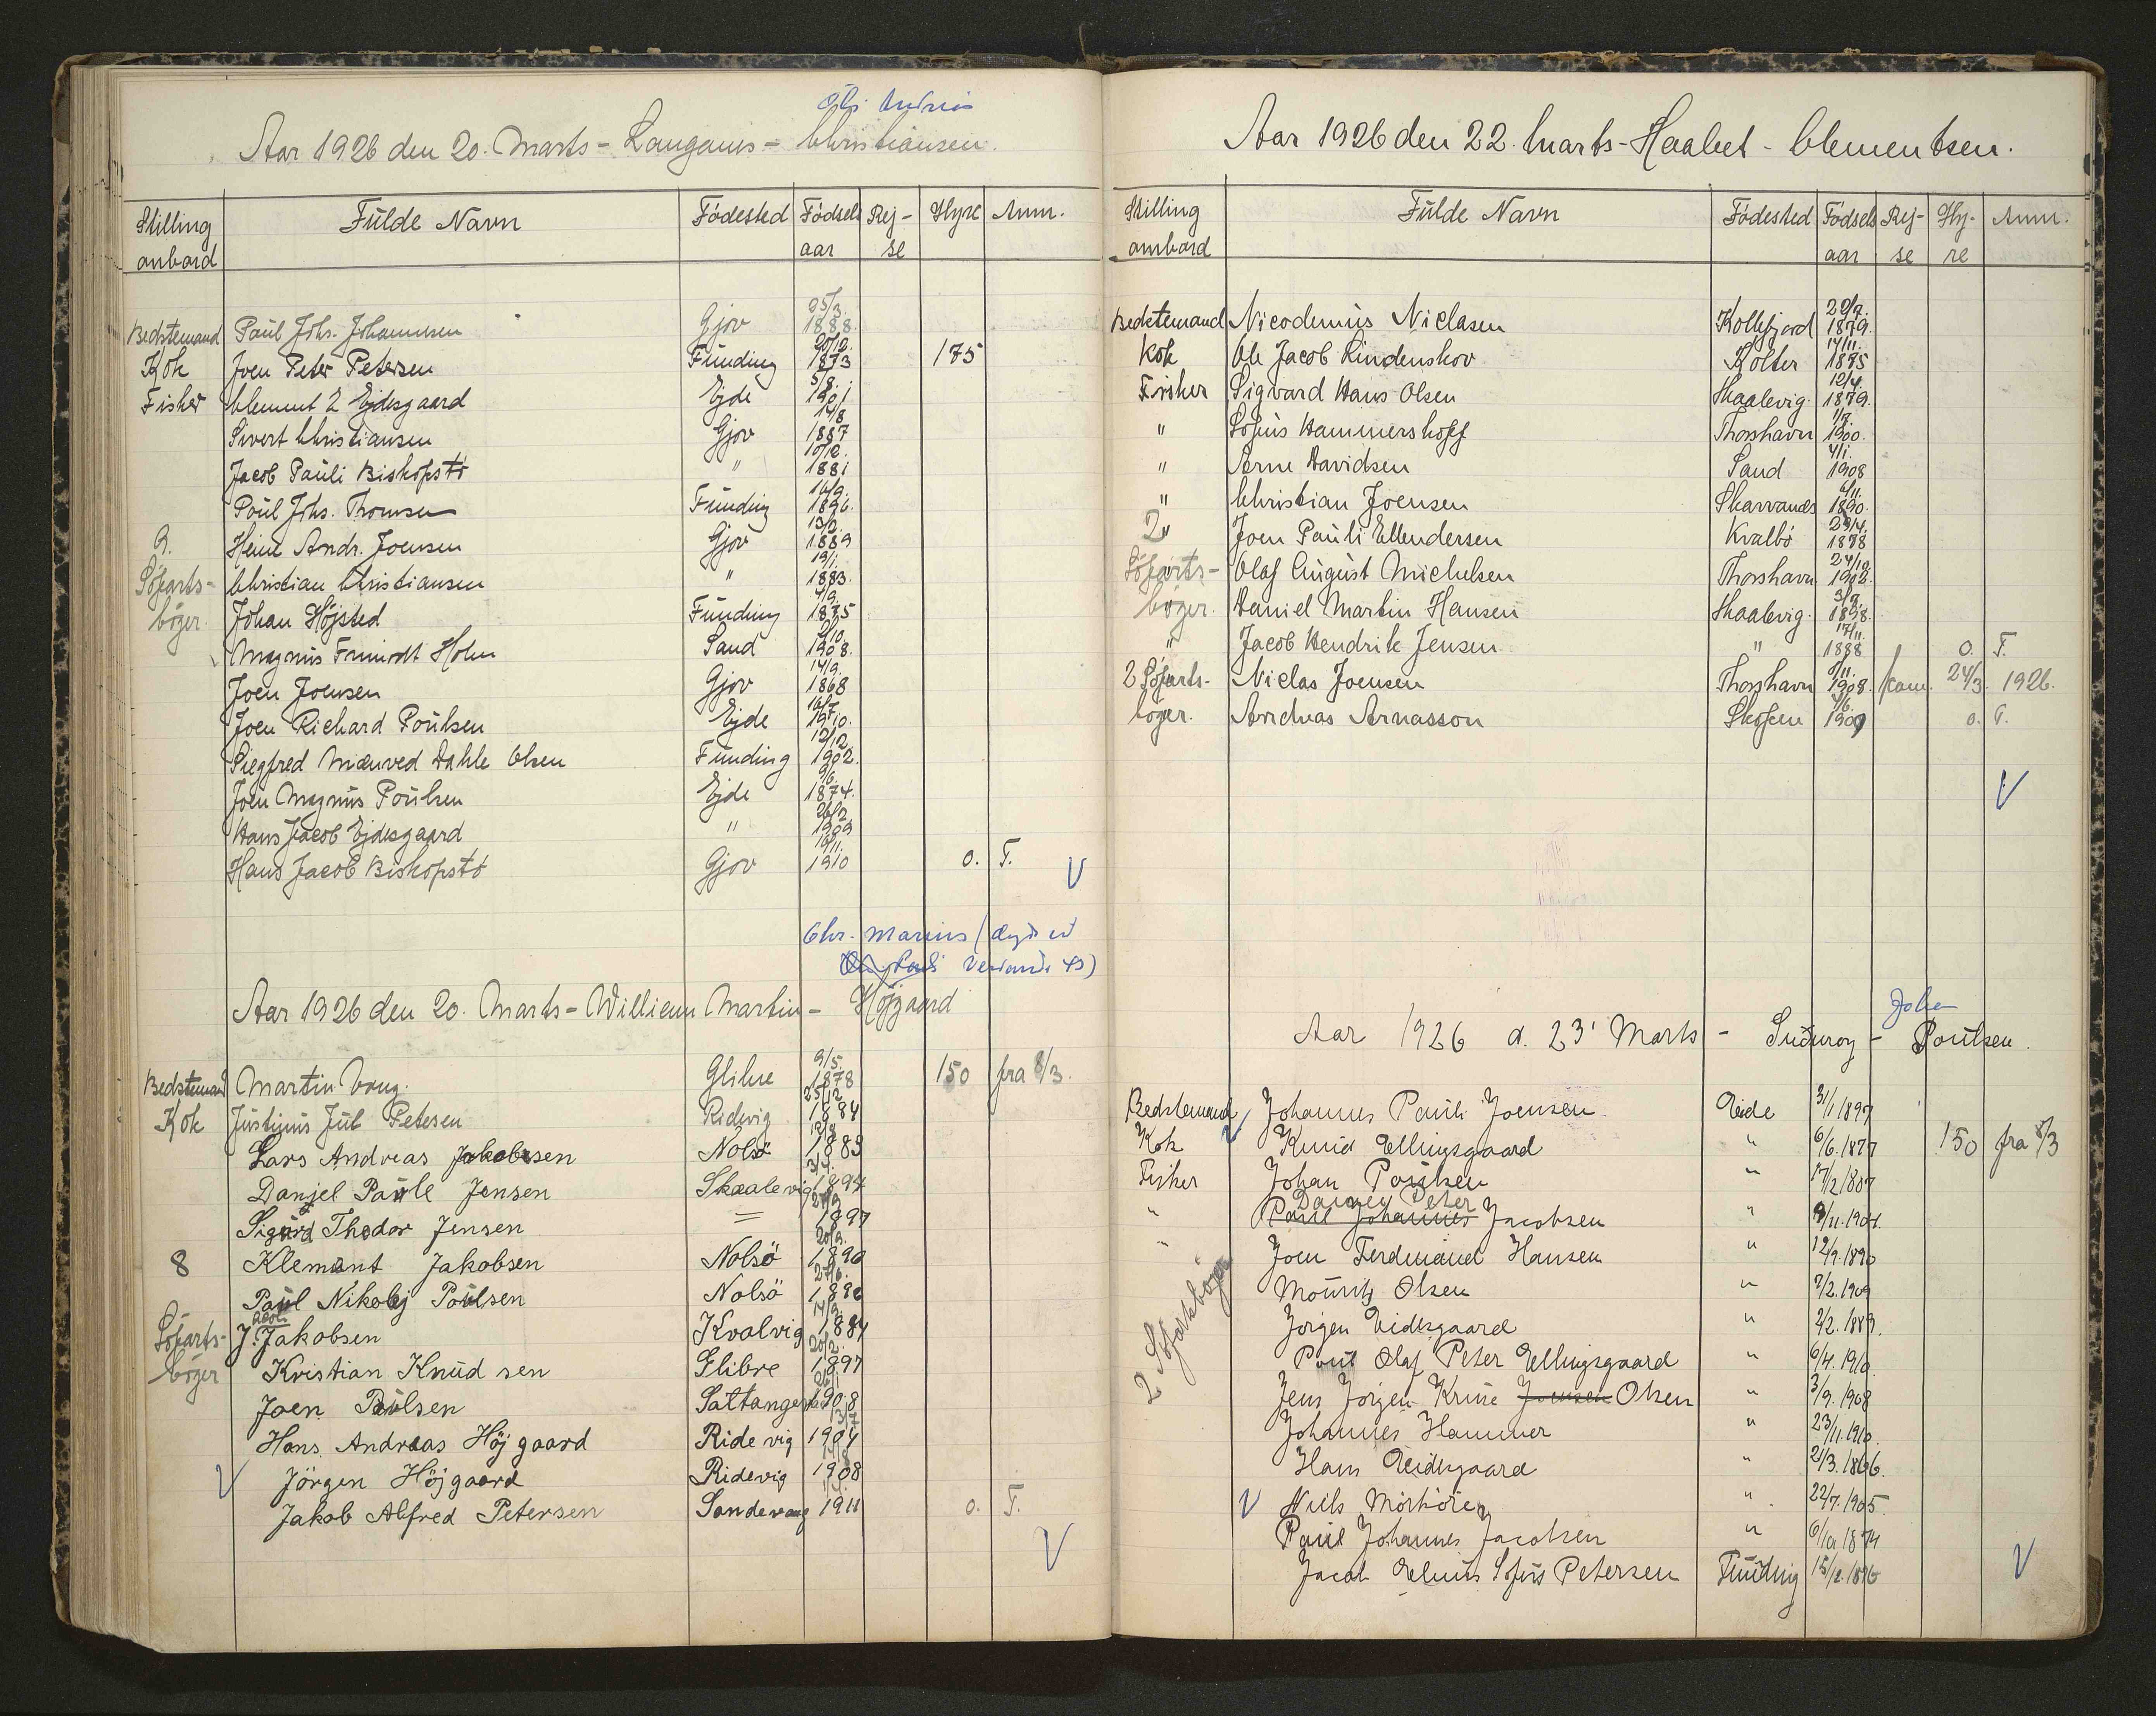 Aar 1926 den 20. Marts - Langanes - Christiansen.
Stilling ombord Fulde Navn Födested Födsels aar Rej- se Hyre Anm.
Bedstemand Paul Johs. Johannesen Gjov 25/3. 1888.
Kok Joen Peter Petersen Funding 20/12. 1873 175
Fisker Clement Z Ejdesgaard Ejde 5/8. 1901
Sivert Christiansen Gjov 14/8 1887
Jacob Pauli Biskopstö " 10/12. 1881
Poul Johs. Thomsen Funding 16/9. 1896.
9. Heine Andr. Joensen Gjov 13/2. 1889
Söfarts- Christian Christiansen " 19/1. 1883.
böger Johan Höjsted Funding 4/9. 1875
Magnus Holm Sand 2/10. 1908.
Joen Joensen Gjov 14/9. 1868
Joen Richard Poulsen Ejde 16/7 1910.
Siegfred Dahle Olsen Funding 12/12. 1902.
Joen Magnus Poulsen Ejde 9/6. 1874.
Hans Jacob Ejdesgaard " 26/2 1909
Hans Jacob Biskopstö Gjov 18/11. 1910 0. T.
Chr. Marius
Aar 1926 den 20. Marts - William Martin - Höjgaard
Bedstemand Martin Vang. Glibre 9/5. 1878 150 fra 8/3.
Kok Justinus Jul Petesen Ridevig 25/12 1884
Lars Andreas Jakobsen Nolsö 12/8 1883
Danjel Paule Jensen Skaalevig 3/4. 1894
Sigurd Thodor Jensen = 27/9 1897
8 Klemant Jakobsen Nolsö 20/9. 1890
Paul Nikolaj Poulsen Nolsö 27/6. 1886
Söfarts- J. Jakobsen Kvalvig 14/9. 1884
böger Kristian Knudsen Glibre 20/2. 1897
Joen Poulsen 26/1 1908
Hans Andreas Höjgaard Ridevig 13/7 1904
Jörgen Höjgaard Ridevig 1908
Jakob Alfred Petersen Sandevaag 1911 0. T.
Aar 1926 den 22. Marts - Haabet - Clementsen.
Stilling ombord Fulde Navn Födested Födsels aar Rej- se Hy- re Anm.
Bedstemand Nicodemus Niclasen Kollefjord 29/9. 1879.
Kok Ole Jacob Lindenskov Kolter 14/11. 1875
Fisker Sigvard Hans Olsen Skaalevig. 12/4. 1879.
" Sofus Hammershoff Thorshavn 1/7. 1900.
" Arne Davidsen Sand 4/1. 1908
" Christian Joensen Skarvanes 6/11. 1890.
2" Joen Pauli Ellendersen Kvalbö 29/4. 1878
Söfarts- Olaf August Michelsen Thorshavn 24/10. 1902.
böger. Daniel Martin Hansen Skaalevig. 3/9. 1898.
" Jacob Hendrik Jensen " 17/11. 1888 0. T.
2 Söfarts- Niclas Joensen Thorshavn 1/11. 1908. kom. 24/3. 1926.
böger. Andreas Arnasson Skopen 4/6. 1909 0. T.
John
Aar 1926 d. 23' Marts - Suduroy - Poulsen.
Bedstemand Johannes Pauli Joensen Eide 31/1 1897
Kok Knud Ellingsgaard " 6/6. 1877 150 fra 8/3
Fisker Johan Poulsen " 17/2 1887
Peter
" Paul Johannes Jacobsen " 9/11. 1904.
Joen Ferdinand Hansen " 12/9. 1890
Mouritz Olsen " 7/2. 1909
2 Söfartsböger
Jorgen Eidesgaard " 2/2. 1883.
Poul Olaf Peter Ellingsgaard " 6/4. 1910.
Jens Jorgen Kruse Joensen Olsen " 3/9. 1908
Johannes Hammer " 23/11. 1910.
Hans Eidesgaard " 21/3. 1866.
Niels Mörköre " 22/7. 1905.
Paul Johannes Jacobsen " 6/10 1874
Jacob Sofus Petersen Funding 15/12. 1896